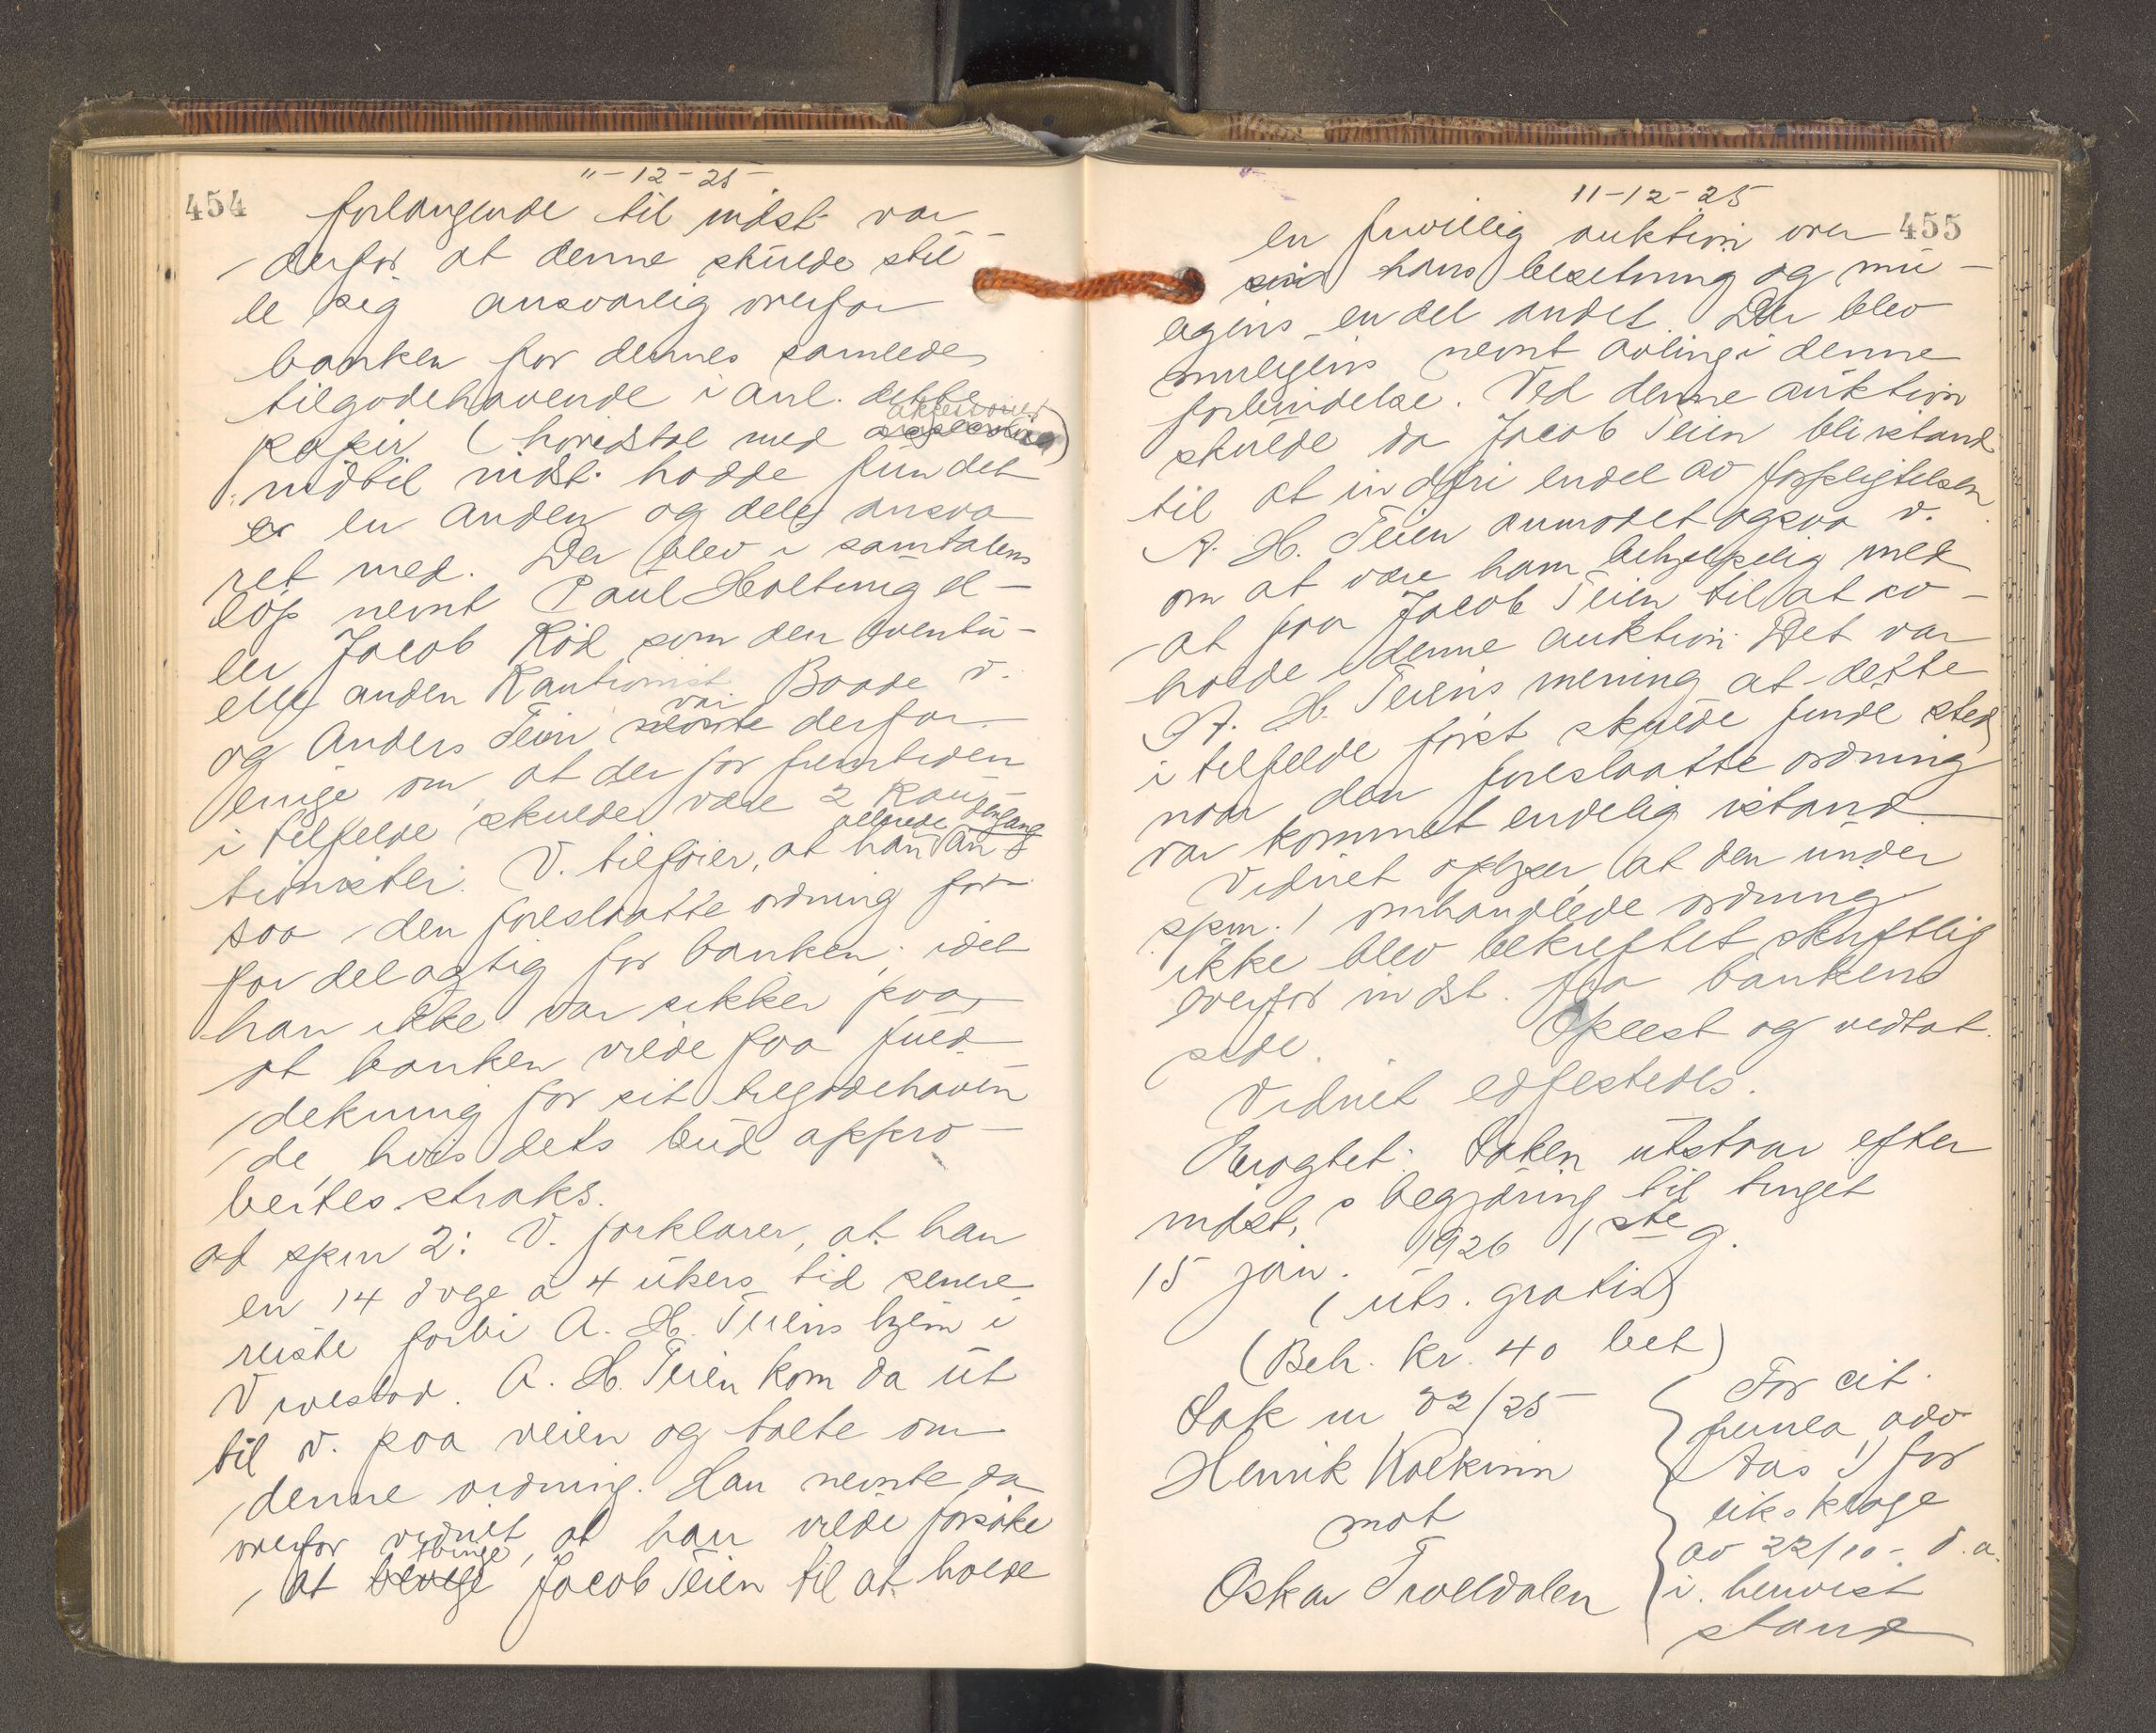 11-12-25
454
forlangende til indst. var
derfor at denne skulde stil-
le sig ansvarlig overfor
banken for dennes samlede
tilgodehavende i anl. dette
papir (hovedstol med aksessorier)
indtil indst. hadde fundet
er en anden og dele ansva-
ret med. Der blev i samtalens
løp nevnt Paul Holtung el-
ler Jacob Rød som den eventu-
elle anden Kautionist. Baade v.
og Anders Teien var derfor
enige om at der for fremtiden
i tilfelde skulde være 2 kau-
tionister. V. tilføier, at han allerede dengang an-
saa den foreslaatte ordning for
fordelagtig for banken, idet
han ikke var sikker paa,
at banken vilde faa fuld
dekning for sit tilgodehaven-
de, hvis dets bud appro-
bertes straks.
ad spm 2: V. forklarer, at han
en 14 dage a 4 ukers tid senere
reiste forbi A. H. Teiens hjem i
Vivestad. A. H. Teien kom da ut
til v. paa veien og talte om
denne ordning. Han nevnte da
overfor vidnet, at han vilde forsøke
at tvinge Jacob Teien til at holde
11-12-25
455
en frivillig auktion over
sin hans besetning og mu-
ligens endel andet. Der blev
muligens nevnt avling i denne
forbindelse. Ved denne auktion
skulde da Jacob Teien bli istand
til at indfri endel av forpligtelsen.
A. H. Teien anmodet ogsaa v.
om at være ham behjelpelig med
at faa Jacob Teien til at av-
holde denne auktion. Det var
A. H. Teiens mening at dette
i tilfelde først skulde finde sted
naar den foreslaatte ordning
var kommet endelig istand.
Vidnet oplyser, at den under
spm. 1 omhandlede ordning
ikke blev bekreftet skriftlig
overfor indst. fra bankens
side. Oplest og vedtat.
Vidnet edfestedes.
Avagtet: Saken utstaar efter
indst.s begjæring til tinget
15 jan. 1926 1ste g.
(uts. gratis)
(Beh. kr. 40 bet)
Sak nr 82/25
Henrik Kolkinn
mot
Oskar Trolldalen
For cit.
fremla adv
Aas 1) for
liks klage
av 22/10- d.a.
i henvist
stand